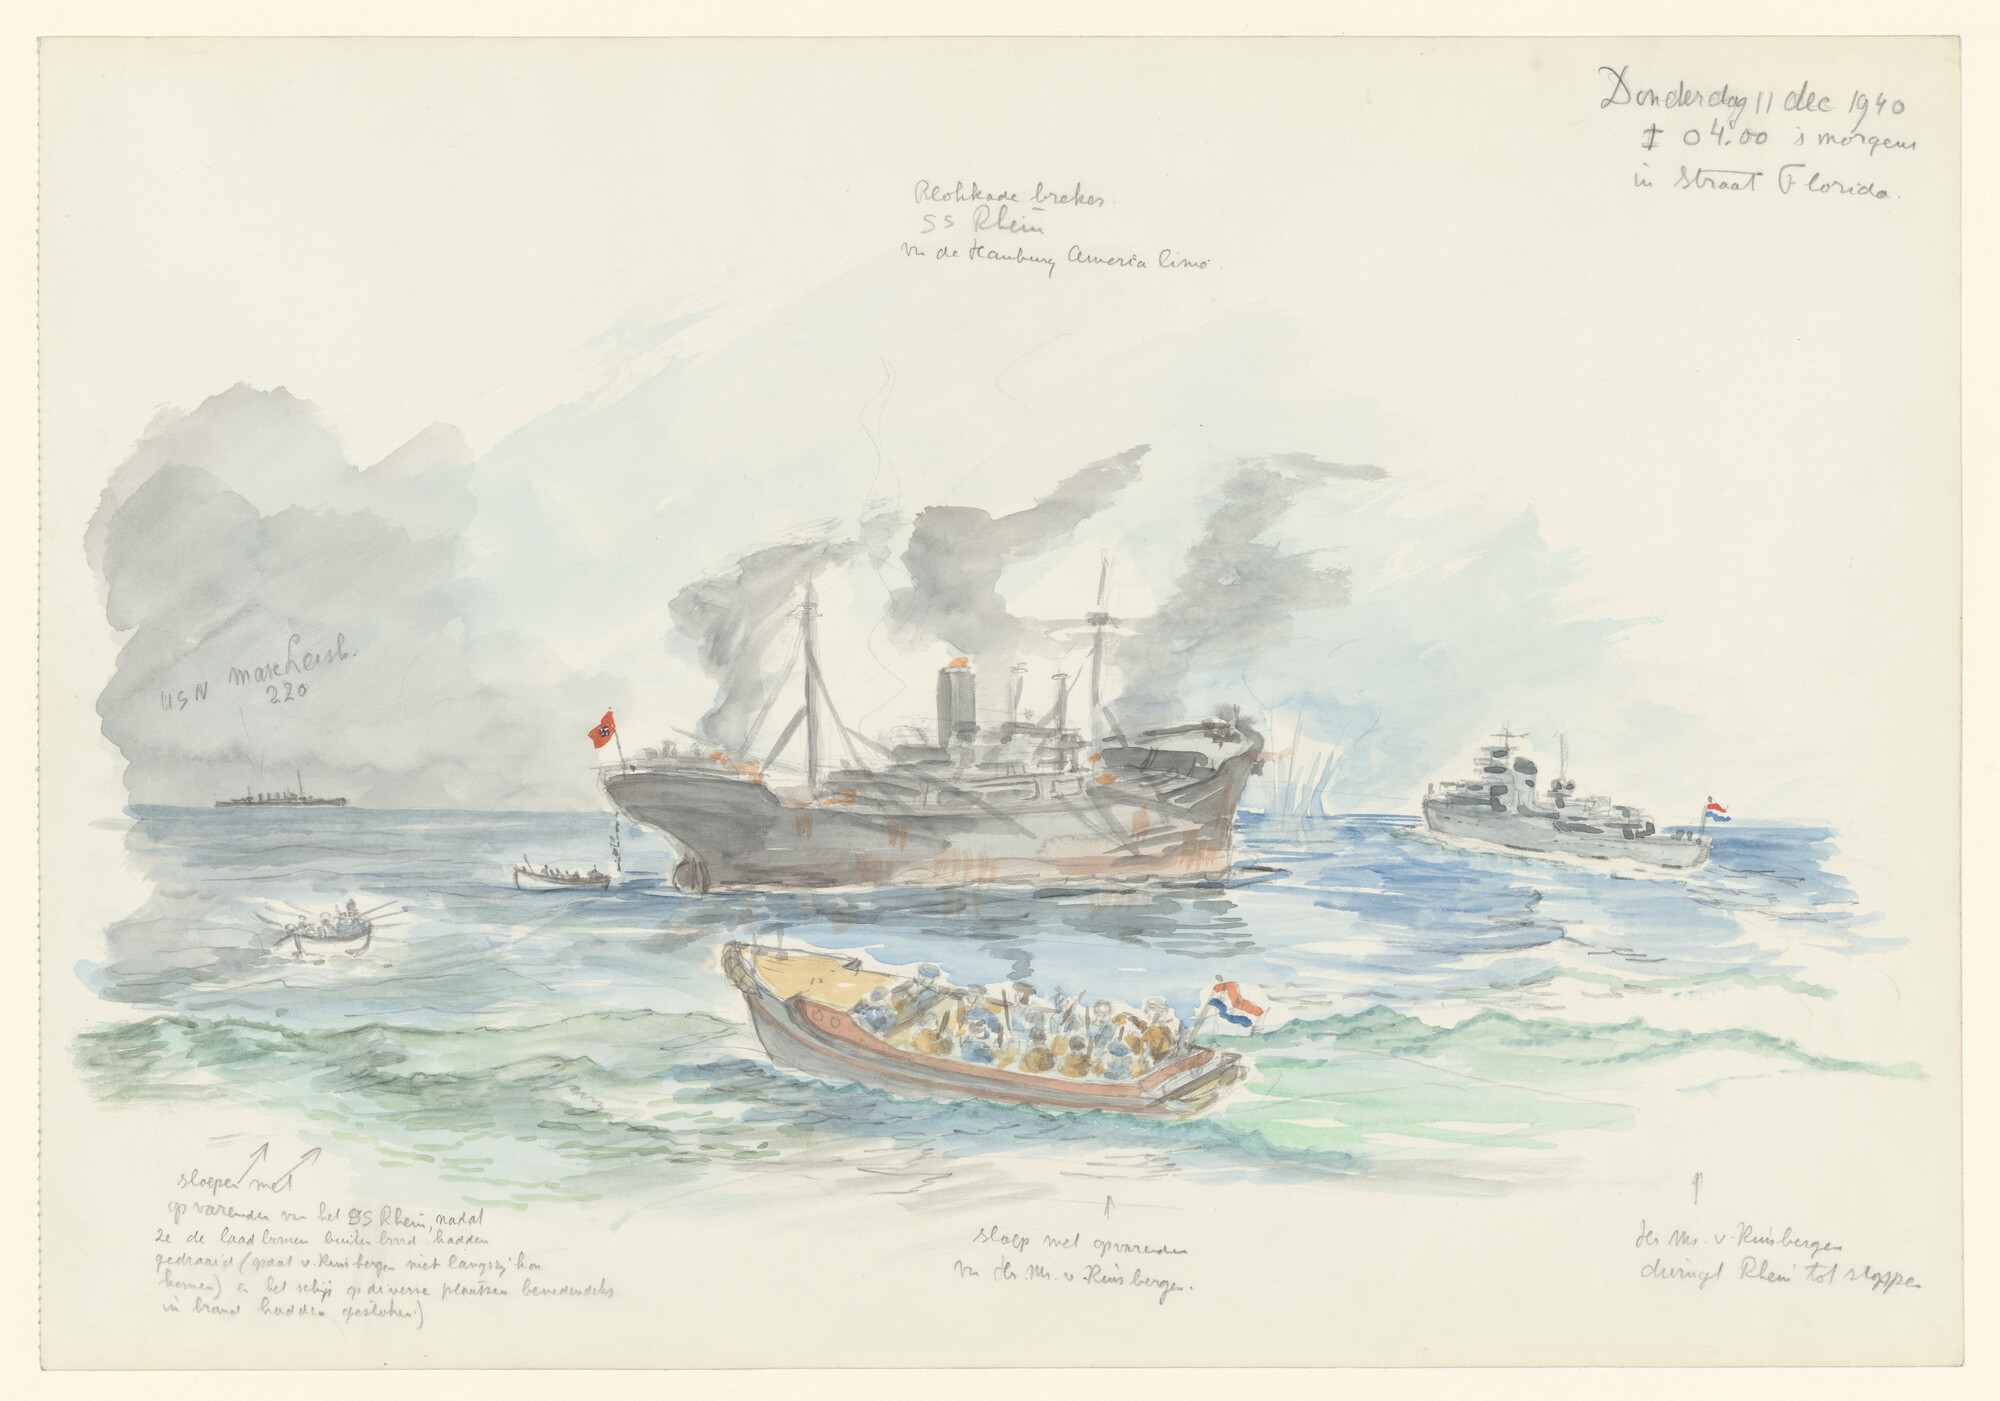 Donderdag 11 dec 1940
± 04.00 's morgens
in Straat Florida.
Blokkade breker.
SS Rhein
vn de Hamburg America
USN
220
sloepen met
opvarenden vn het SS Rhein, nadat
ze de laad bomen buiten boord hadden
gedraaid (opdat v. Kinsbergen niet langszij kon
komen) en het schip op diverse plaatsen benedendeks
in brand hadden gestoken.)
sloep met opvarenden
vn Hr. Ms. v. Kinsbergen.
Hr Ms. v. Kinsbergen
dwingt Rhein tot stoppen